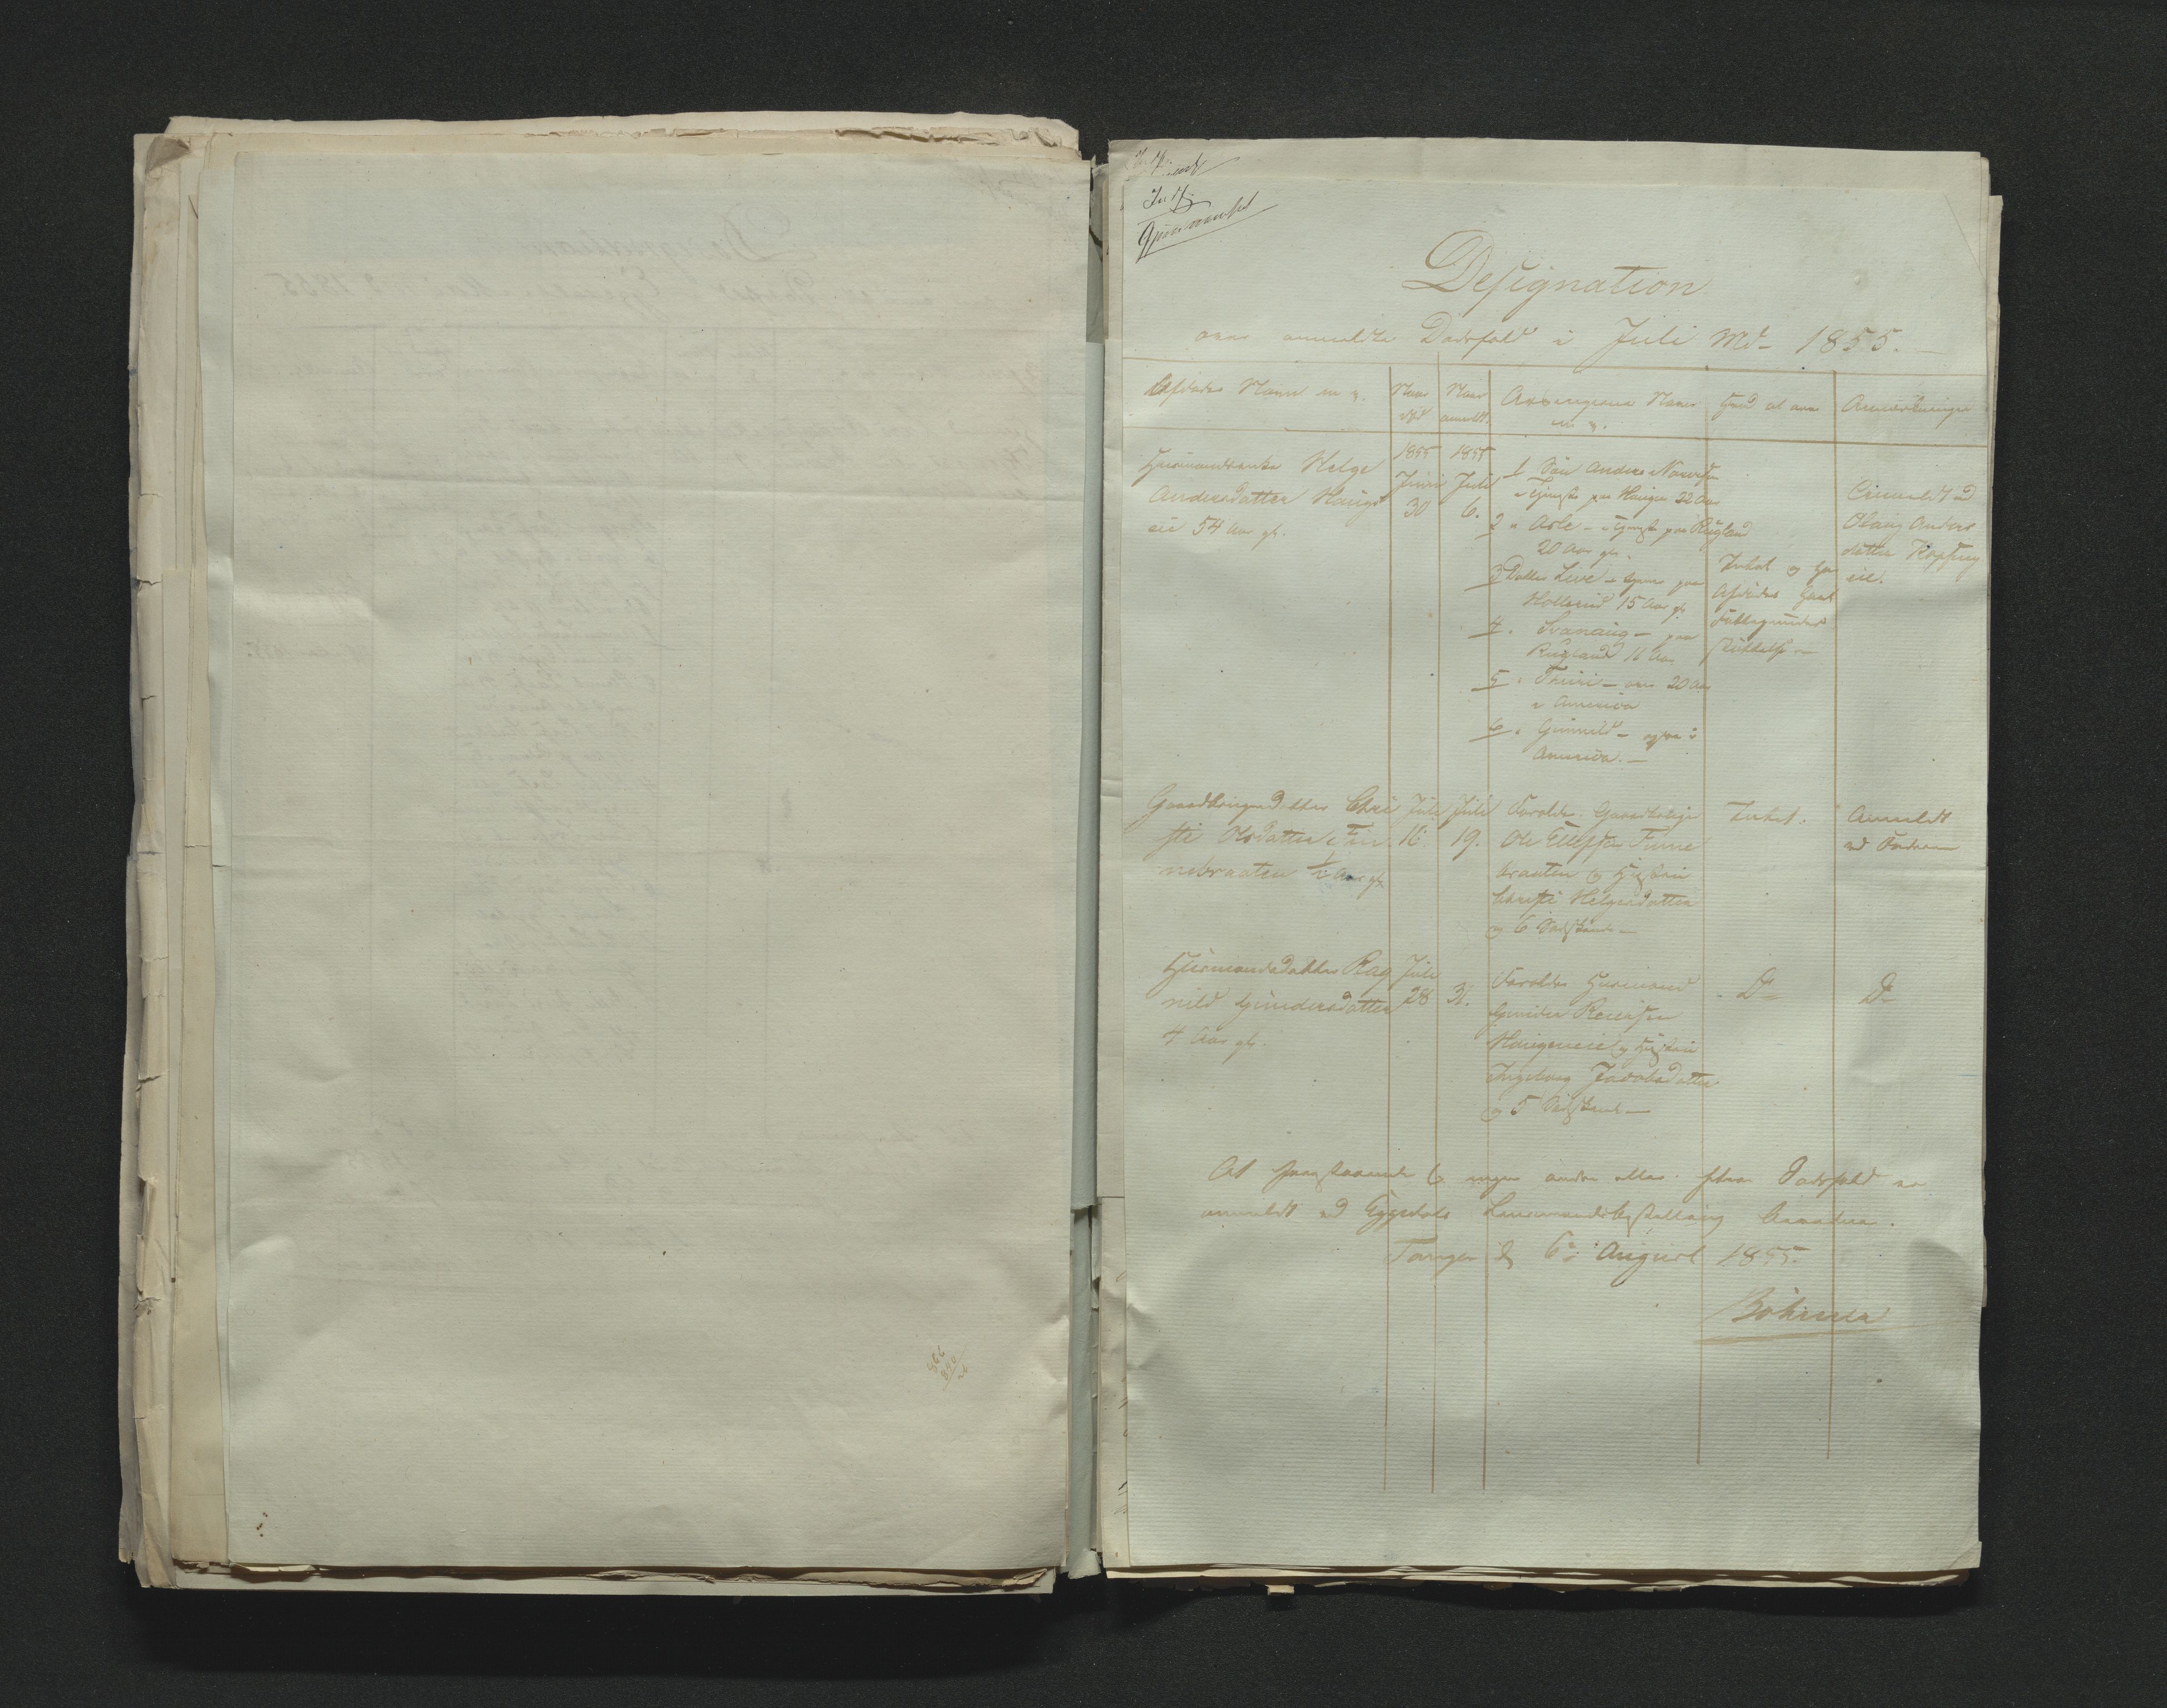 Designation
over anmeldte Dødsfald i Juli Md- 1855.
Afdødes Navn m. v.
Naar død
Naar anmeldt.
Arvingernes Navne m. v.
Hvad at arve
Anmærkninger
Huusmandsenke Helge
Andersdatter Haugs
eie 54 Aar gl.
1855
Juni
30
1855
Juli
6.
1 Søn Anders
i Tjeneste paa Haugen 22 Aar
2 " Asle - i Tjenest paa Rugland
20 Aar gl.
3 Datter Live - tjener paa
15 Aar gl.
4 " Svanaug - paa
Rugland 11 Aar
5 " Thuri - over 20 Aar
i America
6 " Gunnild - ogsaa i
America. -
Intet og har
Afdøde havt
Fattigunder
støttelse -
Anmeldt ved
Olaug Anders
datter
eie.
Gaardbrugerdatter Chri
sti Olsdatter Fin
nebraaten ½ Aar gl.
Juli
16
Juli
19.
Forældre Gaardbruger
Ole Ellefsen Finne
braaten og Hustru
Christi Helgesdatter
og 6 Sødskende -
Intet.
Anmeldt
ved Faderen
Huusmandsdatter Rag
nild Gundersdatter
4 Aar gl.
Juli
28
31.
Forældre Huusmand
Gunder Reiersen
Haugeneie og Hustru
Ingeborg Jacobsdatter
og 5 Sødskende -
Do
Do
At foranstaaende og ingen andre eller flere Dødsfald er
anmeldt ved Eggedals Lensmandsbestilling
den 6te August 1855.